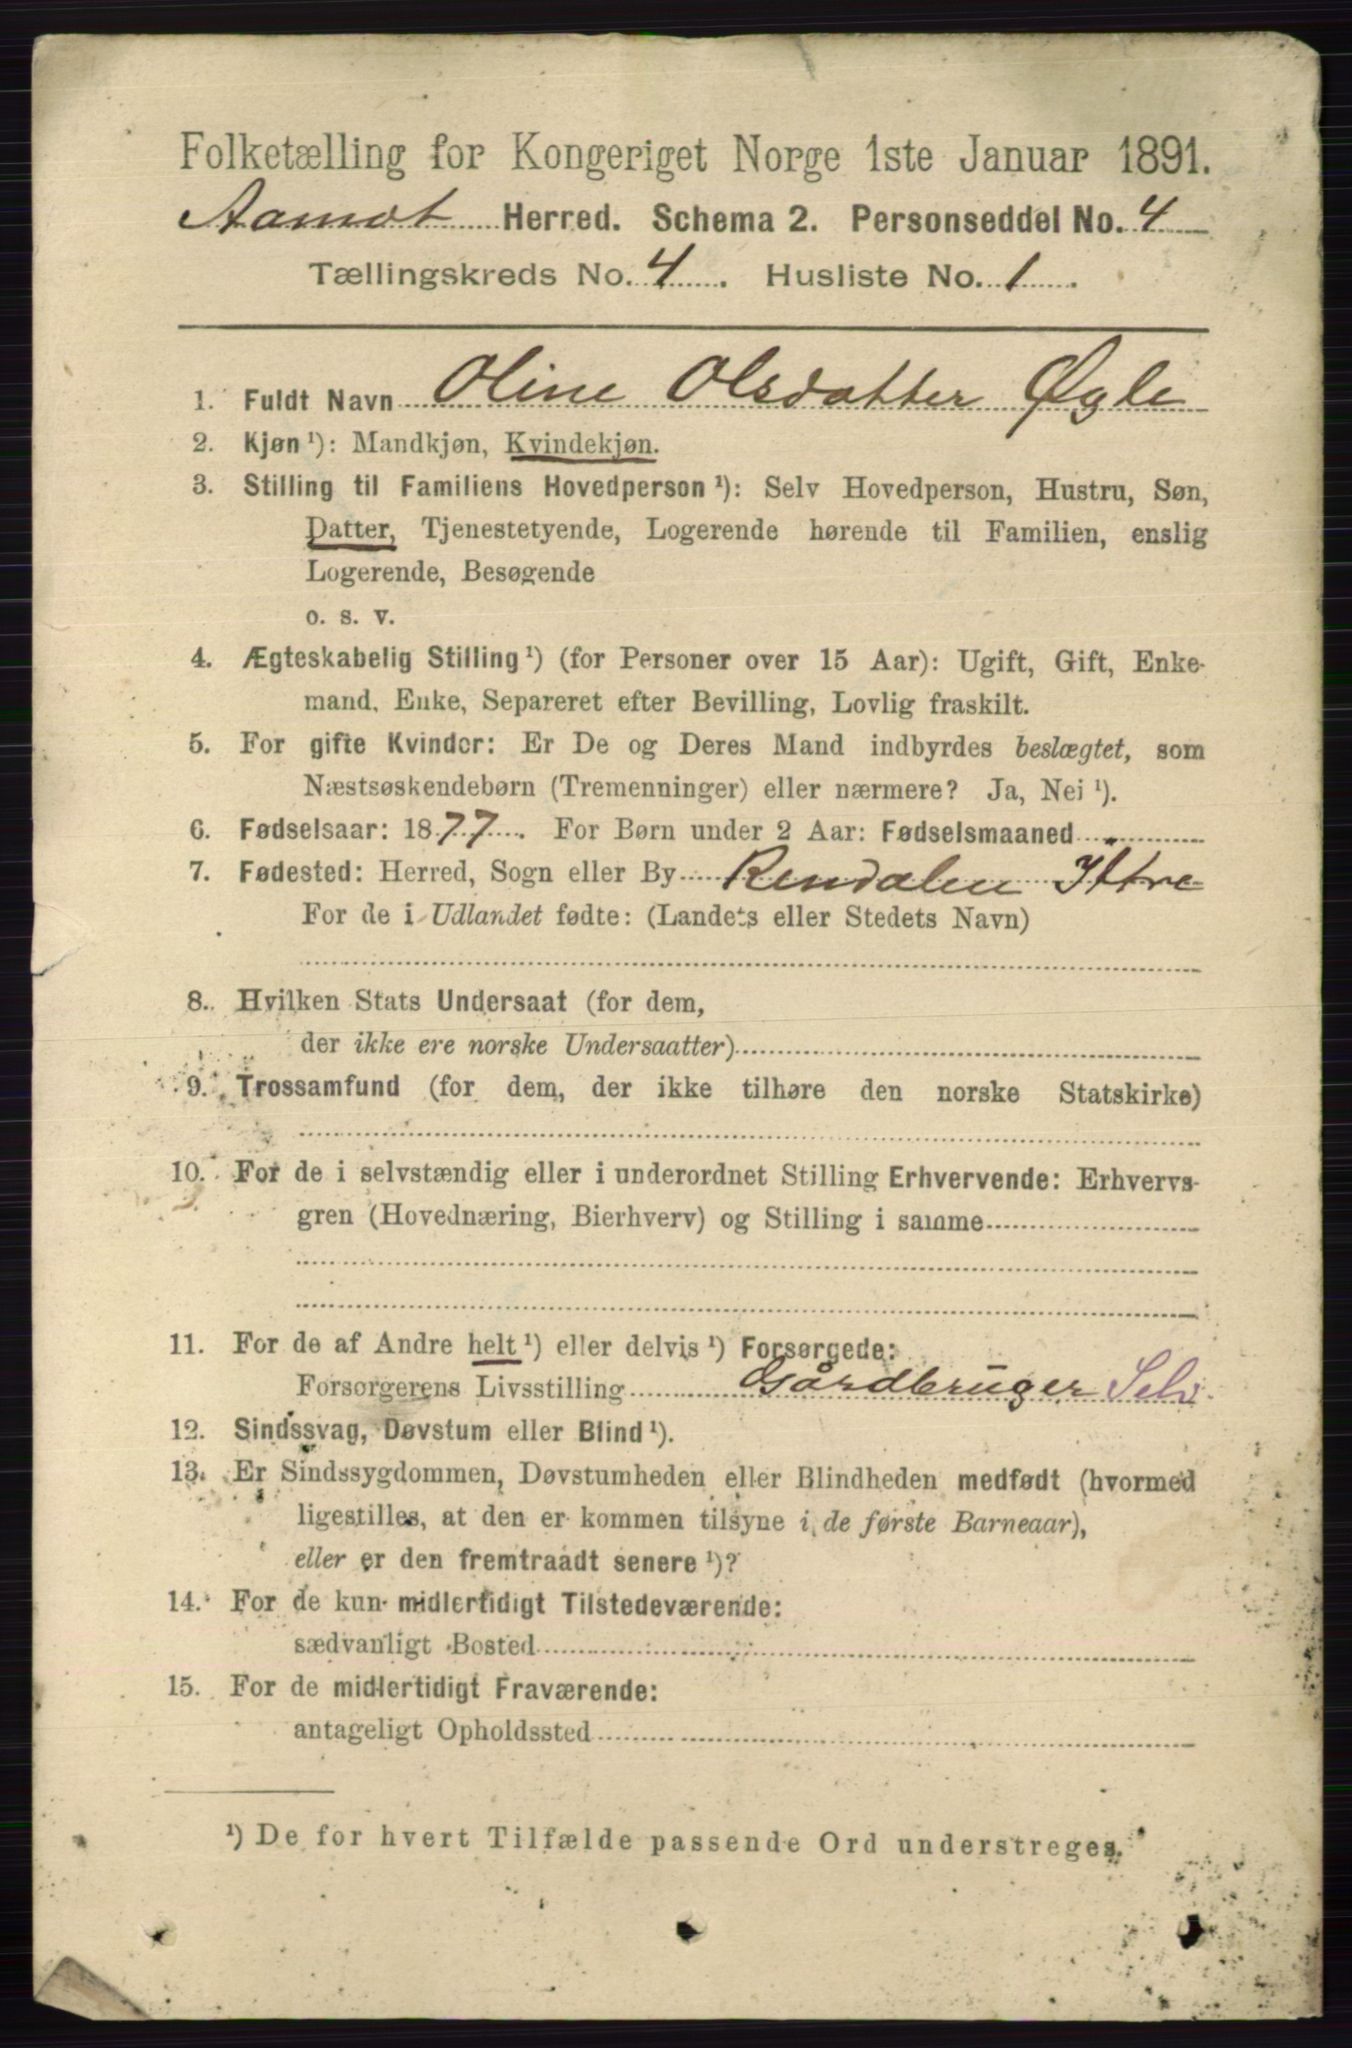 Folketælling for Kongeriget Norge 1ste Januar 1891.
Aamot Herred. Schema 2. Personseddel No. 4
Tællingskreds No. 4. Husliste No. 1.
1. Fuldt Navn Oline Olsdatter Øgle
2. Kjøn ¹): Mandkjøn, Kvindekjøn.
3. Stilling til Familiens Hovedperson ¹): Selv Hovedperson, Hustru, Søn,
Datter, Tjenestetyende, Logerende hørende til Familien, enslig
Logerende, Besøgende
o. s. v.
4. Ægteskabelig Stilling ¹) (for Personer over 15 Aar): Ugift, Gift, Enke-
mand, Enke, Separeret efter Bevilling, Lovlig fraskilt.
5. For gifte Kvinder: Er De og Deres Mand indbyrdes beslægtet, som
Næstsøskendebørn (Tremenninger) eller nærmere? Ja, Nei ¹).
6. Fødselsaar: 1877. For Børn under 2 Aar: Fødselsmaaned
7. Fødested: Herred, Sogn eller By Rendalen Yttre
For de i Udlandet fødte: (Landets eller Stedets Navn)
8. Hvilken Stats Undersaat (for dem,
der ikke ere norske Undersaatter)
9. Trossamfund (for dem, der ikke tilhøre den norske Statskirke)
10. For de i selvstændig eller i underordnet Stilling Erhvervende: Erhvervs-
gren (Hovednæring, Bierhverv) og Stilling i samme
11. For de af Andre helt ¹) eller delvis ¹) Forsørgede:
Forsørgerens Livsstilling Gårdbruger Selv.
12. Sindssvag, Døvstum eller Blind ¹).
13. Er Sindssygdommen, Døvstumheden eller Blindheden medfødt (hvormed
ligestilles, at den er kommen tilsyne i de første Barneaar),
eller er den fremtraadt senere ¹)?
14. For de kun midlertidigt Tilstedeværende:
sædvanligt Bosted
15. For de midlertidigt Fraværende:
antageligt Opholdssted
¹) De for hvert Tilfælde passende Ord understreges.